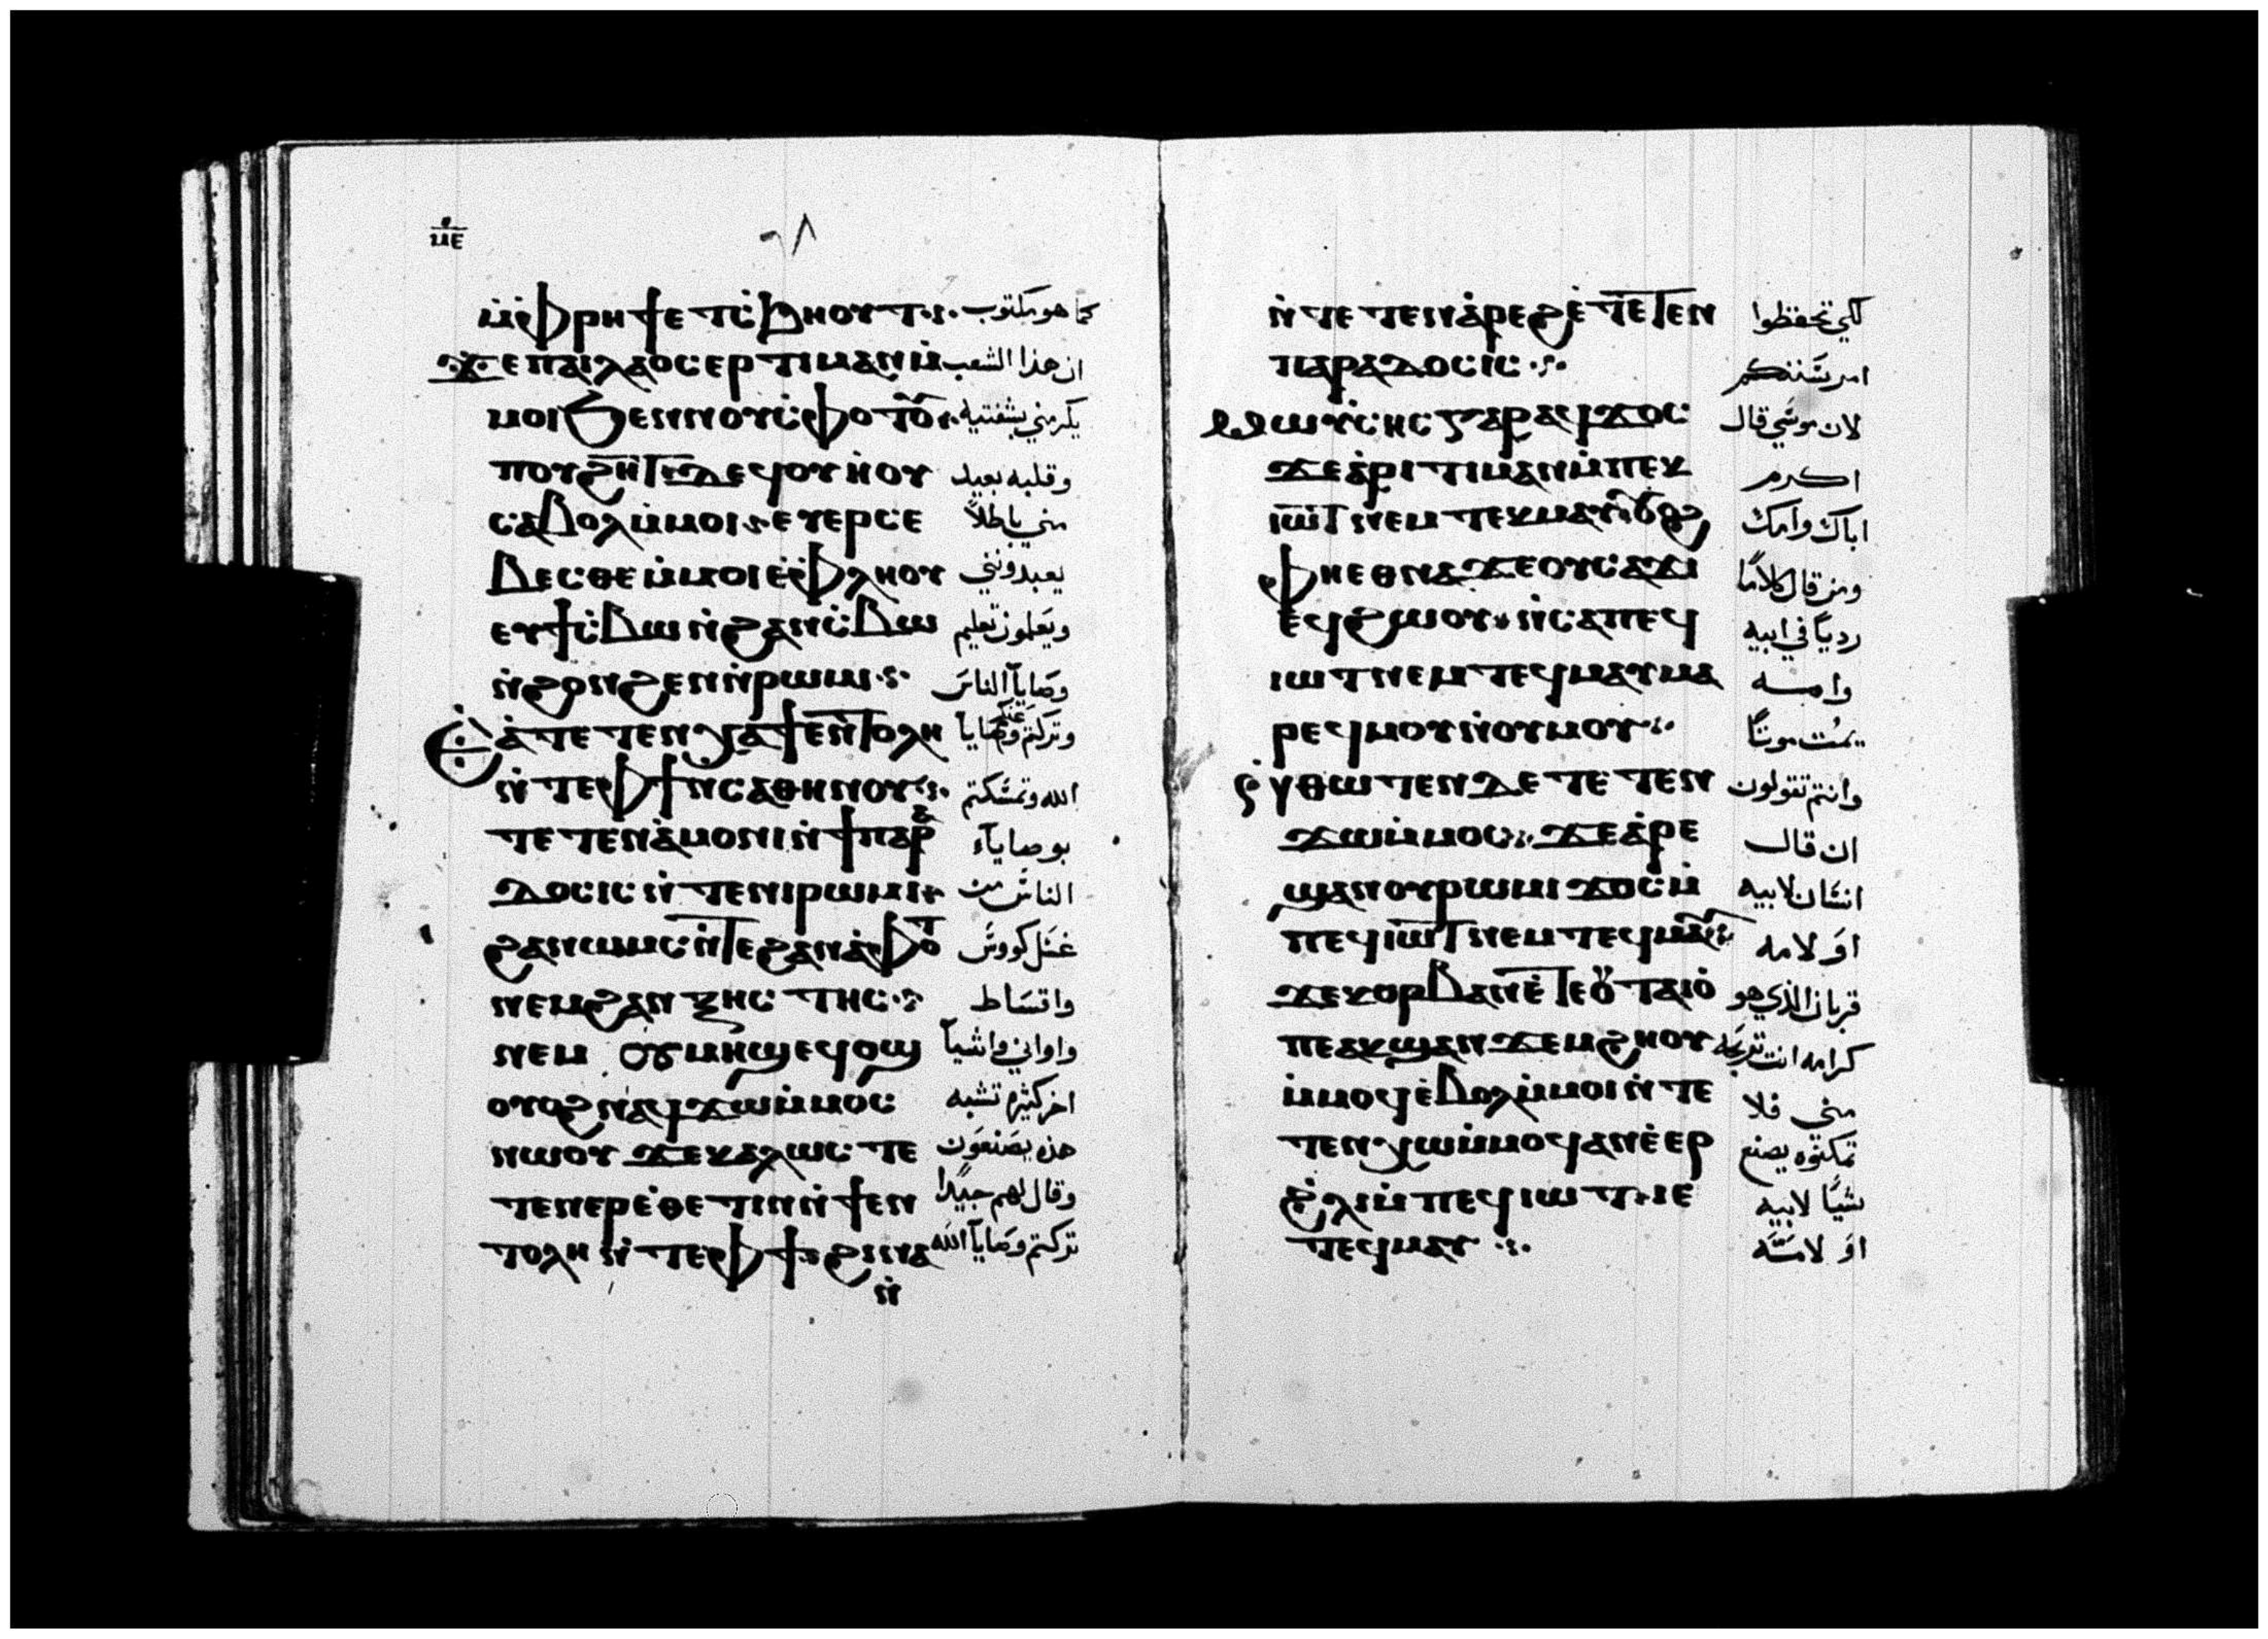 ⲙⲉ
ⲙ̀ⲫⲣⲏϯ ⲉⲧⲥ̀ϧⲏⲟⲩⲧ كما هو مكتوب
ϫⲉ ⲡⲁⲓⲗⲁⲟⲥ ⲉⲣⲧⲓⲙⲁⲛ ⲙ̀ ان هذا الشعب
ⲙⲟⲓ ϧⲉⲛ ⲛⲟⲩⲥ̀ⲫⲟⲧⲟⲩ يكرمني بشفتيه
ⲡⲟⲩϩⲏⲧ ⲇⲉ ϥⲟⲩⲏⲟⲩ وقلبه بعيد
ⲥⲁⲃⲟⲗ ⲙ̀ⲙⲟⲓ ⲉⲩⲉⲣⲥⲉ مني باطلاً
ⲃⲉⲥⲑⲉ ⲙ̀ⲙⲟⲓ ⲉ̀ⲫⲗⲏⲟⲩ يعبدونني
ⲉⲩϯⲥ̀ⲃⲱ ⲛ̀ϩⲁⲛⲥ̀ⲃⲱ ويعلمون تعليم
ⲛ̀ϩⲟⲛϩⲉⲛ ⲛ̀ⲣⲱⲙⲓ وصايا الناس
ⲉ̀ⲁ̀ⲧⲉⲧⲉⲛⲭⲁ ϯⲉⲛⲧⲟⲗⲏ وتركتم عنكم وصايا
ⲛ̀ⲧⲉ ⲫϯ ⲛ̀ⲥⲁⲑⲏⲛⲟⲩ الله وتمسكتم
ⲧⲉⲧⲉⲛⲁ̀ⲙⲟⲛⲓ ⲛ̀ϯⲡⲁⲣⲁ بوصايا
ⲇⲟⲥⲓⲥ ⲛ̀ⲧⲉ ⲛⲓⲣⲱⲙⲓ الناس من
ϩⲁⲛⲱⲙⲥ ⲛ̀ⲧⲉ ϩⲁⲛⲁ̀ⲫⲟⲧ غسل كووس
ⲛⲉⲙ ϩⲁⲛⲝⲏⲥⲧⲏⲥ واقساط
ⲛⲉⲙ ⲟⲩⲙⲏϣ ⲉϥⲟϣ واواني واشيا
ⲟⲩⲟϩ ⲛⲁϥϫⲱ ⲙ̀ⲙⲟⲥ اخر كثيره تشبه
ⲛⲱⲟⲩ ϫⲉ ⲕⲁⲗⲱⲥ ⲧⲉ هذه يصنعون
ⲧⲉⲛⲉⲣⲉ̀ⲑⲉⲧⲓⲛ ⲛ̀ϯⲉⲛ وقال لهم جيدا
ⲧⲟⲗⲏ ⲛ̀ⲧⲉ ⲫϯ ϩⲓⲛⲁ تركتم وصايا الله
ⲛ̀
ⲛ̀ⲧⲉⲧⲉⲛⲁ̀ⲣⲉϩ ⲉ̀ⲧⲉⲧⲉⲛ لكي تحفظوا
ⲡⲁⲣⲁⲇⲟⲥⲓⲥ
ⲙⲱⲩ̀ⲥⲏⲥ ⲅⲁⲣ ⲁϥϫⲟⲥ لان موسي قال
ϫⲉ ⲁ̀ⲣⲓⲧⲓⲙⲁⲛ ⲙ̀ⲡⲉⲕ اكرم
ⲓⲱⲧ ⲛⲉⲙ ⲧⲉⲕⲙⲁⲩ ⲟⲩⲟϩ اباك وامك
ⲫⲏⲉⲑⲛⲁϫⲉ ⲟⲩⲥⲁϫⲓ ومن قال كلاما
ⲉϥϩⲱⲟⲩ ⲛ̀ⲥⲁ ⲡⲉϥ رديا في ابيه
ⲓⲱⲧ ⲛⲉⲙ ⲧⲉϥⲙⲁⲩ ⲙⲁ وامه
ⲣⲉϥⲙⲟⲩ ⲛ̀ⲟⲩⲙⲟⲩ يمت موتا
ⲛ̀ⲑⲱⲧⲉⲛ ⲇⲉ ⲧⲉⲧⲉⲛ وانتم تقولون
ϫⲱ ⲙ̀ⲙⲟⲥ ϫⲉ ⲁ̀ⲣⲉ ان قال
ϣⲁⲛ ⲟⲩⲣⲱⲙⲓ ϫⲟⲥ ⲙ̀ انسان لابيه
ⲡⲉϥⲓⲱⲧ ⲛⲉⲙ ⲧⲉϥⲙⲁⲩ او لامه
ϫⲉ ⲕⲟⲣⲃⲁⲛ ⲉ̀ⲧⲉ ⲟⲩⲧⲁⲓⲟ̀ قربان الذي هو
ⲡⲉ ⲁⲕϣⲁⲛϫⲉⲙϩⲏⲟⲩ كرامه انت
ⲙ̀ⲙⲟϥ ⲉ̀ⲃⲟⲗ ⲙ̀ⲙⲟⲓ ⲛ̀ⲧⲉ مني فلا
ⲧⲉⲛⲭⲱ ⲙ̀ⲙⲟϥ ⲁⲛ ⲉ̀ⲉⲣ تمكنوه يصنع
ϩ̀ⲗⲓ ⲙ̀ⲡⲉϥⲓⲱⲧ ⲓⲉ شيا لابيه
ⲧⲉϥⲙⲁⲩ او لامه